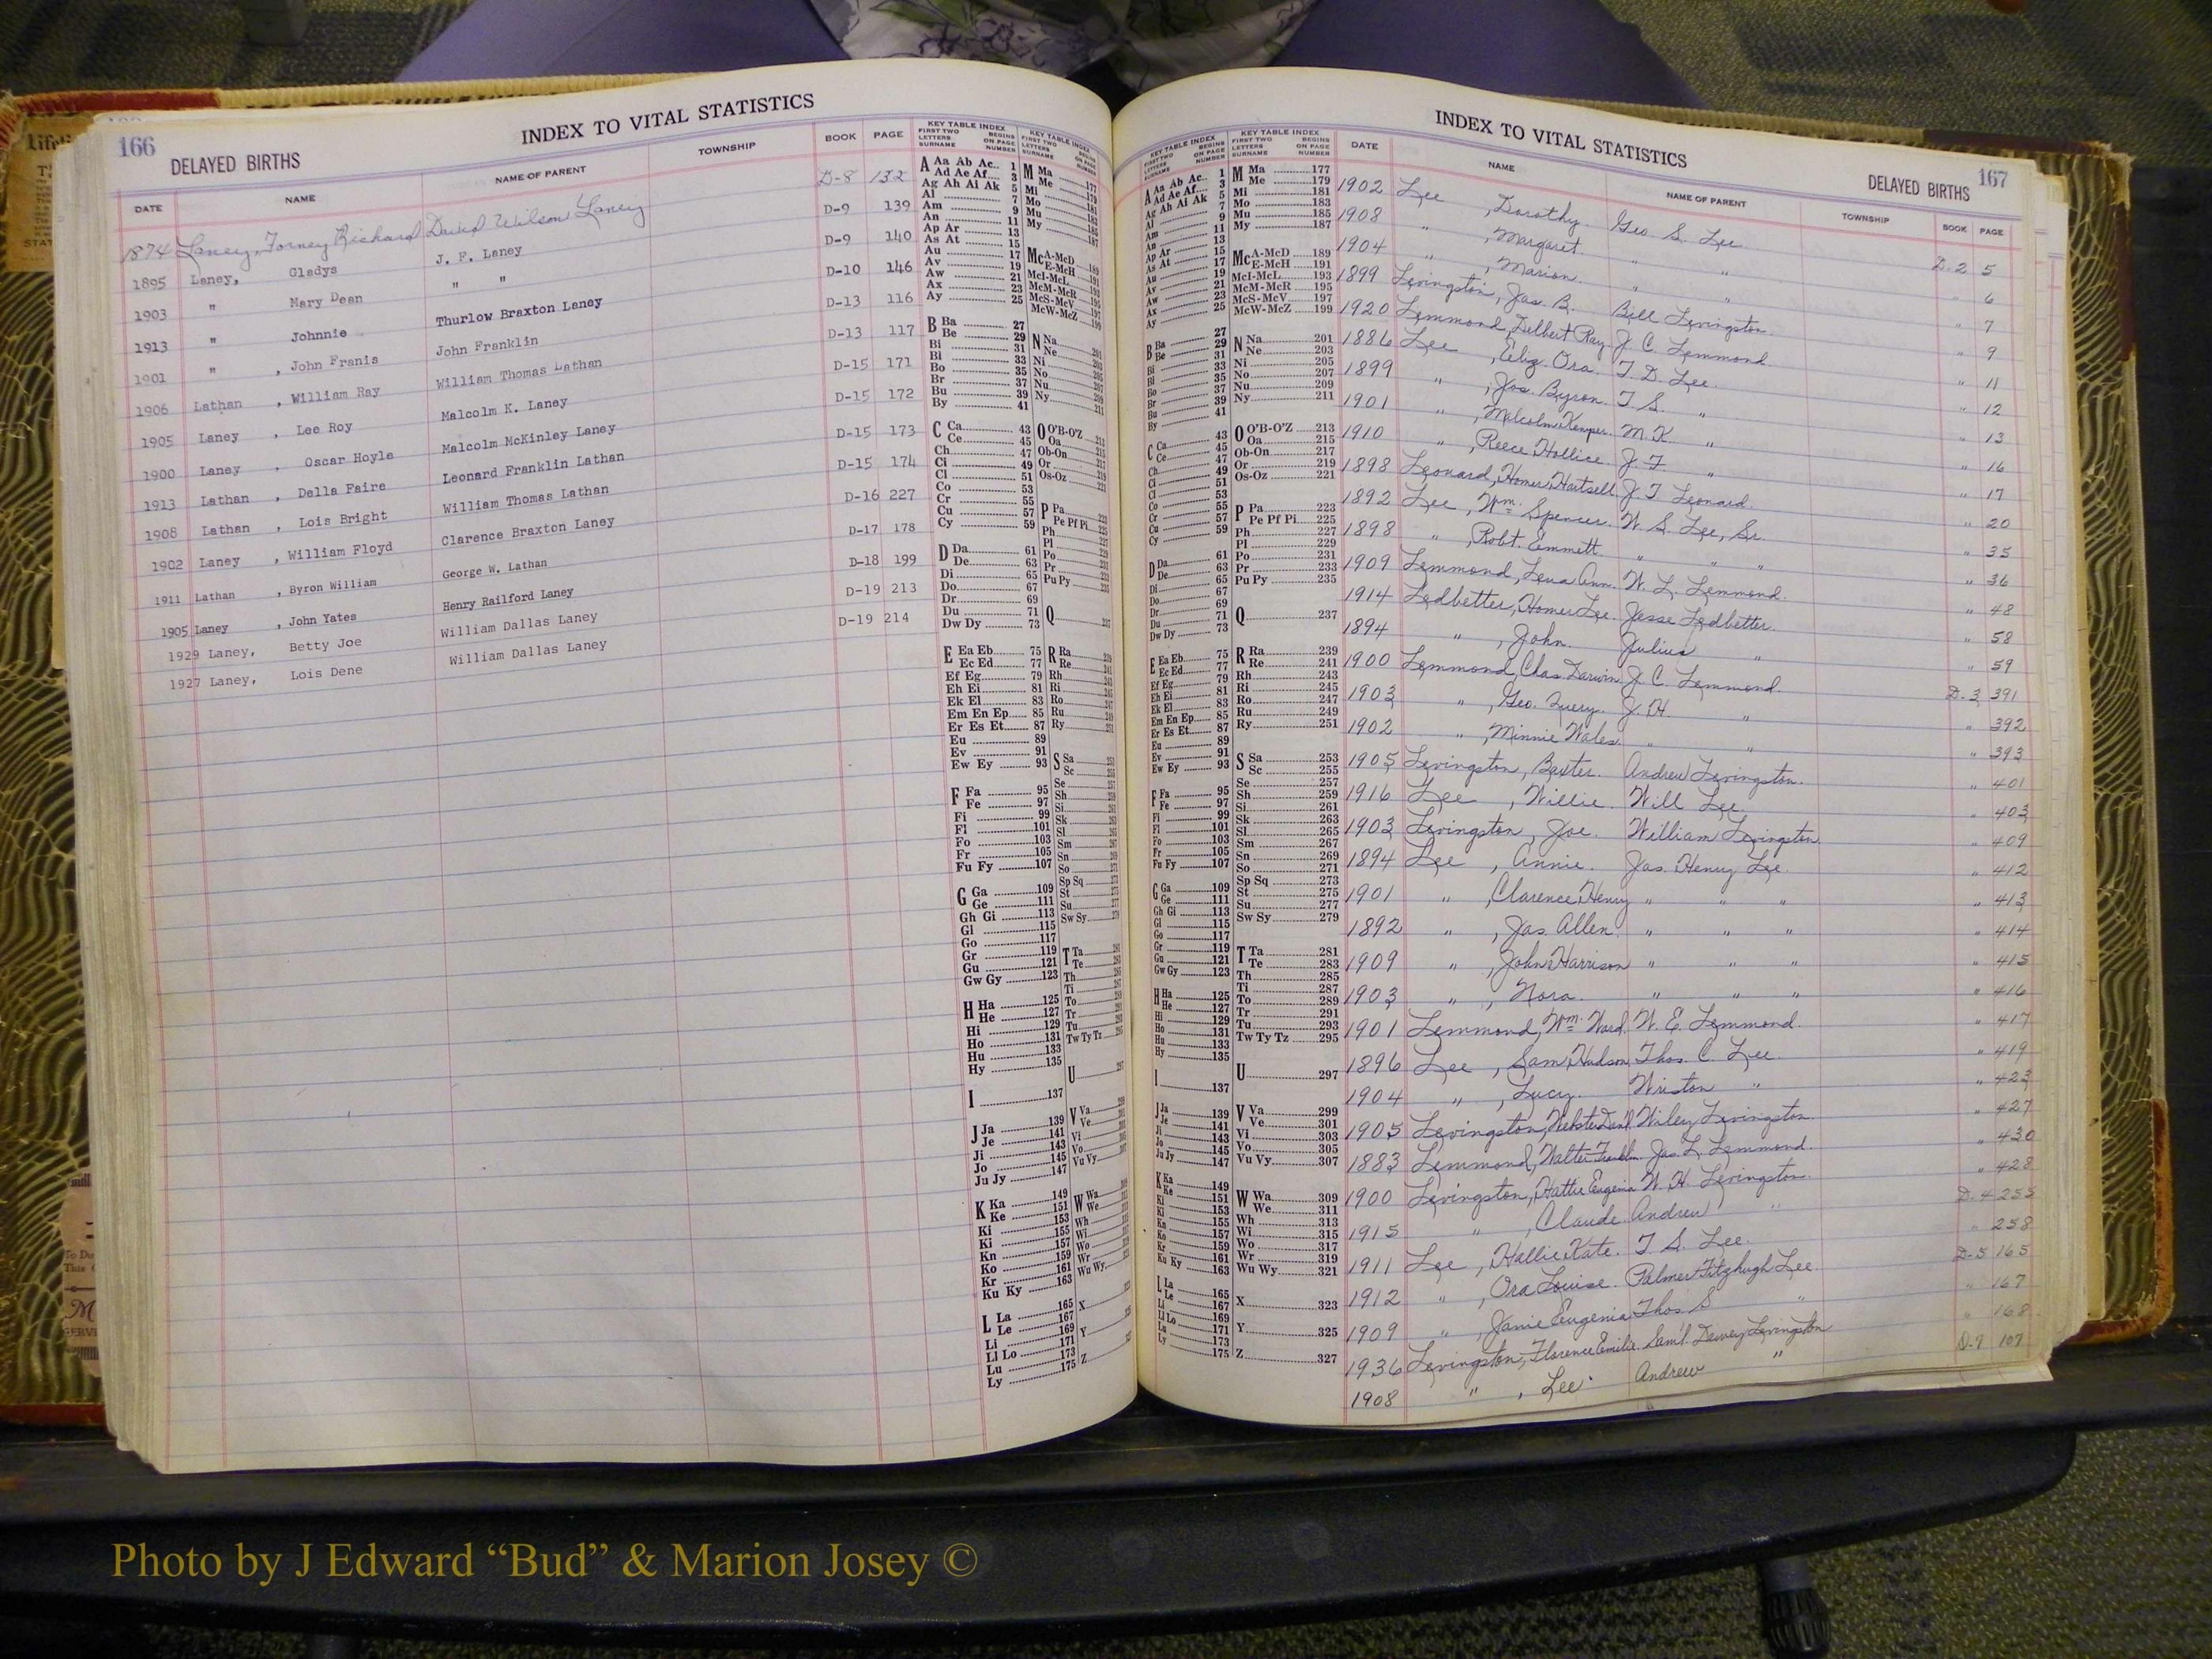 166
INDEX TO VITAL STATISTICS
DELAYED BIRTHS
DATE NAME NAME OF PARENT TOWNSHIP BOOK PAGE
1874 Laney, Forney Richard David Wilson Laney D-8 132
1895 Laney, Gladys J. F. Laney D-9 139
1903 " Mary Dean " " D-9 140
1913 " Johnnie Thurlow Braxton Laney D-10 146
1901 " , John Franis John Franklin D-13 116
1906 Lathan , William Ray William Thomas Lathan D-13 117
1905 Laney , Lee Roy Malcolm K. Laney D-15 171
1900 Laney , Oscar Hoyle Malcolm McKinley Laney D-15 172
1913 Lathan , Della Faire Leonard Franklin Lathan D-15 173
1908 Lathan , Lois Bright William Thomas Lathan D-15 174
1902 Laney , William Floyd Clarence Braxton Laney D-16 227
1911 Lathan , Byron William George W. Lathan D-17 178
1905 Laney , John Yates Henry Railford Laney D-18 199
1929 Laney, Betty Joe William Dallas Laney D-19 213
1927 Laney, Lois Dene William Dallas Laney D-19 214
KEY TABLE INDEX
FIRST TWO LETTERS SURNAME BEGINS ON PAGE NUMBER
A Aa Ab Ac.. 1
Ad Ae Af.... 3
Ag Ah Ai Ak 5
Al 7
Am 9
An 11
Ap Ar 13
As At 15
Au 17
Av 19
Aw 21
Ax 23
Ay 25
B Ba 27
Be 29
Bi 31
Bl 33
Bo 35
Br 37
Bu 39
By 41
C Ca 43
Ce 45
Ch 47
Ci 49
Cl 51
Co 53
Cr 55
Cu 57
Cy 59
D Da 61
De 63
Di 65
Do 67
Dr 69
Du 71
Dw Dy 73
E Ea Eb 75
Ec Ed 77
Ef Eg 79
Eh Ei 81
Ek El 83
Em En Ep 85
Er Es Et 87
Eu 89
Ev 91
Ew Ey 93
F Fa 95
Fe 97
Fi 99
Fl 101
Fo 103
Fr 105
Fu Fy 107
G Ga 109
Ge 111
Gh Gi 113
Gl 115
Go 117
Gr 119
Gu 121
Gw Gy 123
H Ha 125
He 127
Hi 129
Ho 131
Hu 133
Hy 135
I 137
J Ja 139
Je 141
Ji 143
Jo 145
Ju Jy 147
K Ka 149
Ke 151
Ki 153
Ki 155
Kn 157
Ko 159
Kr 161
Ku Ky 163
L La 165
Le 167
Li 169
Ll Lo 171
Lu 173
Ly 175
INDEX TO VITAL STATISTICS
DELAYED BIRTHS 167
KEY TABLE INDEX
FIRST TWO LETTERS SURNAME BEGINS ON PAGE NUMBER
M Ma 177
Me 179
Mi 181
Mo 183
Mu 185
My 187
Mc A-McD 189
E-McH 191
McI-McL 193
McM-McR 195
McS-McV 197
McW-McZ 199
N Na 201
Ne 203
Ni 205
No 207
Nu 209
Ny 211
O O'B-O'Z 213
Oa 215
Ob-On 217
Or 219
Os-Oz 221
P Pa 223
Pe Pf Pi 225
Ph 227
Pl 229
Po 231
Pr 233
Pu Py 235
Q 237
R Ra 239
Re 241
Rh 243
Ri 245
Ro 247
Ru 249
Ry 251
S Sa 253
Sc 255
Se 257
Sh 259
Si 261
Sk 263
Sl 265
Sm 267
Sn 269
So 271
Sp Sq 273
St 275
Su 277
Sw Sy 279
T Ta 281
Te 283
Th 285
Ti 287
To 289
Tr 291
Tu 293
Tw Ty Tz 295
U 297
V Va 299
Ve 301
Vi 303
Vo 305
Vu Vy 307
W Wa 309
We 311
Wh 313
Wi 315
Wo 317
Wr 319
Wu Wy 321
X 323
Y 325
Z 327
DATE NAME NAME OF PARENT TOWNSHIP BOOK PAGE
1902 Lee , Dorothy Geo. S. Lee D-2 5
1908 " , Margaret " " " 6
1904 " , Marion " " " 7
1899 Levingston, Jas. B. Bill Levingston " 9
1920 Lemmond, Delbert Ray J. C. Lemmond " 11
1886 Lee , Eliz. Ora T. D. Lee " 12
1899 " , Jas. Byron T. S. " " 13
1901 " , Malcolm Kemper M. K. " " 16
1910 " , Reece Hollice J. F. " " 17
1898 Leonard, Homer Hartsell J. T. Leonard " 20
1892 Lee , Wm. Spencer W. S. Lee, Sr. " 35
1898 " , Robt. Emmett " " " " 36
1909 Lemmond, Lena Ann W. L. Lemmond " 48
1914 Ledbetter, Homer Lee Jesse Ledbetter " 58
1894 " , John Julius " " 59
1900 Lemmond, Chas. Darwin J. C. Lemmond D-3 391
1903 " , Geo. Query J. H. " " 392
1902 " , Minnie Wales " " " 393
1905 Levingston, Baxter Andrew Levingston " 401
1916 Lee , Willie Will Lee " 403
1903 Levingston, Joe William Levingston " 409
1894 Lee , Annie Jas. Henry Lee " 412
1901 " , Clarence Henry " " " " 413
1892 " , Jas. Allen " " " " 414
1909 " , John Harrison " " " " 415
1903 " , Nora " " " " 416
1901 Lemmond, Wm. Ward W. E. Lemmond " 417
1896 Lee , Sam Hudson Thos. C. Lee " 419
1904 " , Lucy Wriston " " 423
1905 Levingston, Webster Danl. Wiley Levingston " 427
1883 Lemmond, Walter Franklin Jas. L. Lemmond " 430
1900 Levingston, Hattie Eugenia W. H. Levingston " 428
1915 " , Claude Andrew " D-4 255
1911 Lee , Hallie Kate T. S. Lee " 258
1912 " , Ora Louise Palmer Fitzhugh Lee D-5 165
1909 " , Janie Eugenia Thos. S. " " 167
1936 Levingston, Florence Emilie Sam'l Dewey Levingston " 168
1908 " , Lee Andrew " D-9 107
Photo by J Edward “Bud” & Marion Josey ©